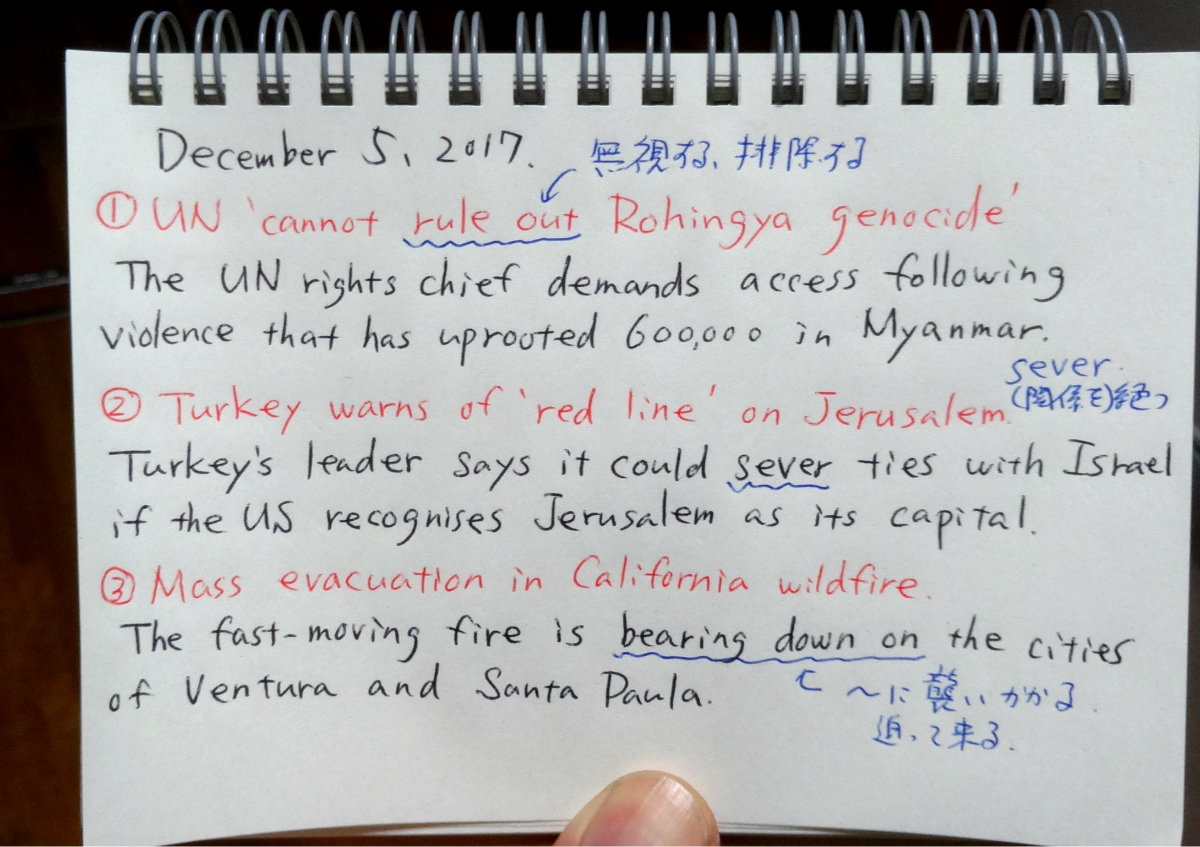 December 5, 2017. 無視する、排除する
① UN 'cannot rule out Rohingya genocide'
The UN rights chief demands access following
violence that has uprooted 600,000 in Myanmar.
sever.
② Turkey warns of 'red line' on Jerusalem. (関係を)絶つ
Turkey's leader says it could sever ties with Israel
if the US recognises Jerusalem as its capital.
③ Mass evacuation in California wildfire.
The fast-moving fire is bearing down on the cities
of Ventura and Santa Paula. 〜に襲いかかる
迫って来る.